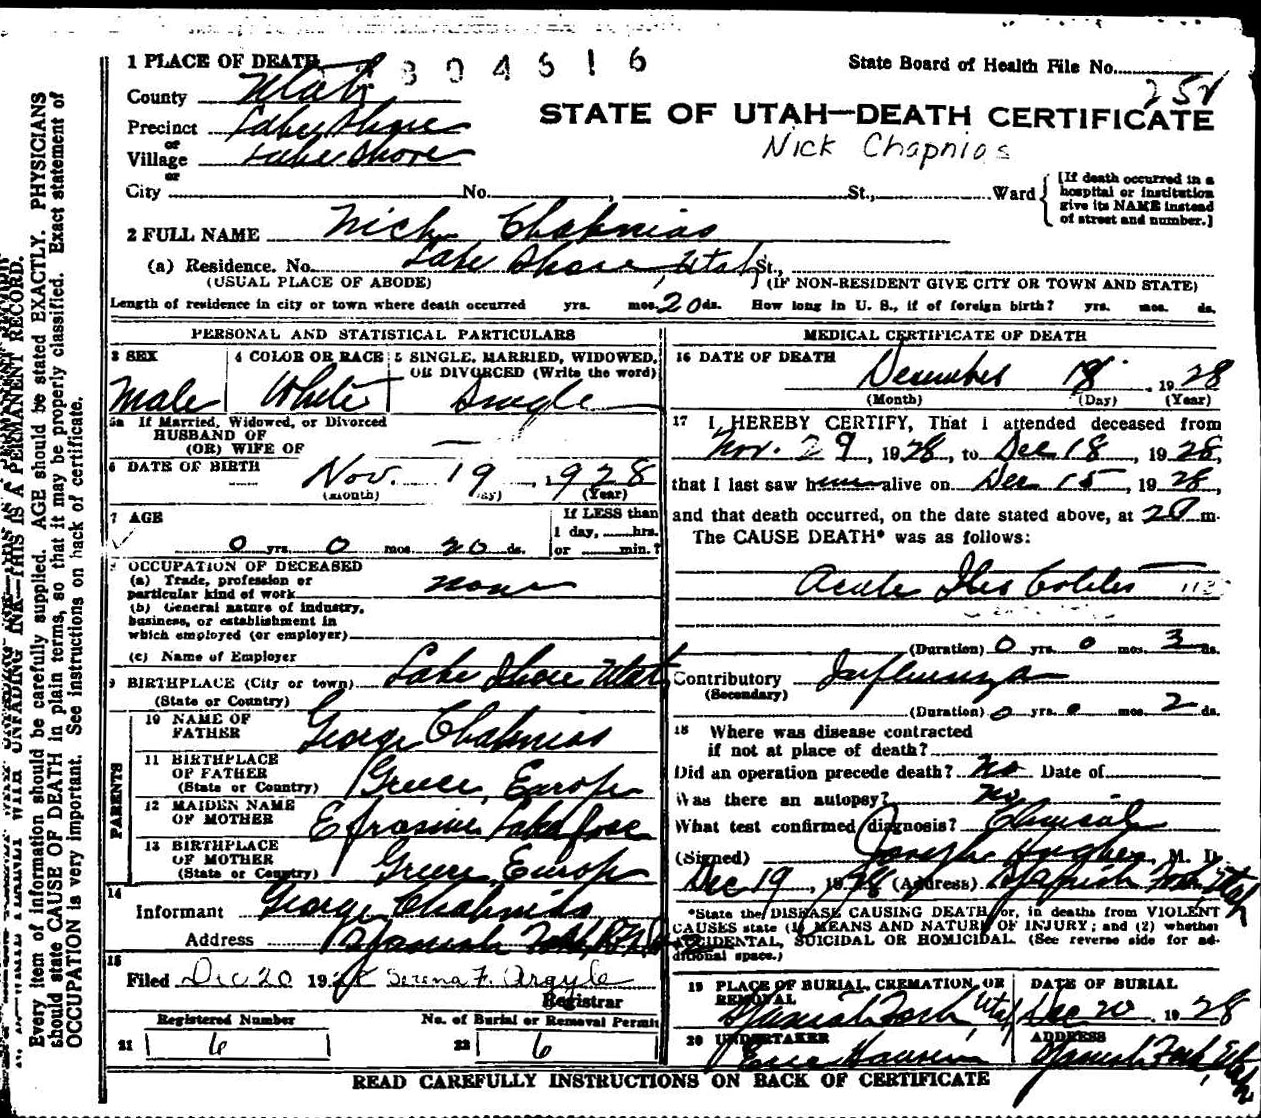 1 PLACE OF DEATH
804616
State Board of Health File No.
252
County Utah
STATE OF UTAH—DEATH CERTIFICATE
Precinct Lake Shore
or
Nick Chapnias
Village Lake Shore
or
City No. , St., Ward
[If death occurred in a
hospital or institution
give its NAME instead
of street and number.]
2 FULL NAME Nick Chapnias
(a) Residence. No. Lake Shore, Utah St.,
(USUAL PLACE OF ABODE) (IF NON-RESIDENT GIVE CITY OR TOWN AND STATE)
Length of residence in city or town where death occurred yrs. mos. 20 ds. How long in U. S., if of foreign birth? yrs. mos. ds.
PERSONAL AND STATISTICAL PARTICULARS
3 SEX
Male
4 COLOR OR RACE
White
5 SINGLE, MARRIED, WIDOWED,
OR DIVORCED (Write the word)
Single
5a If Married, Widowed, or Divorced
HUSBAND OF
(OR) WIFE OF —
6 DATE OF BIRTH Nov. 19, 1928
(month) (Year)
7 AGE
0 yrs. 0 mos. 20 ds.
If LESS than
1 day, hrs.
or min.?
OCCUPATION OF DECEASED
(a) Trade, profession or
particular kind of work none
(b) General nature of industry,
business, or establishment in
which employed (or employer)
(c) Name of Employer
9 BIRTHPLACE (City or town) Lake Shore Utah
(State or Country)
PARENTS
10 NAME OF
FATHER George Chapnias
11 BIRTHPLACE
OF FATHER
(State or Country) Greece, Europe
12 MAIDEN NAME
OF MOTHER Efrosine
13 BIRTHPLACE
OF MOTHER
(State or Country) Greece, Europe
14
Informant George Chapnias
Address Spanish Fork
15
Filed Dec 20 1928 Serena F. Argyle
Registrar
Registered Number
21 6
No. of Burial or Removal Permit
22 6
MEDICAL CERTIFICATE OF DEATH
16 DATE OF DEATH
December 18, 1928
(Month) (Day) (Year)
17 I HEREBY CERTIFY, That I attended deceased from
Nov. 29, 1928, to Dec 18, 1928,
that I last saw him alive on Dec 15, 1928,
and that death occurred, on the date stated above, at m.
The CAUSE DEATH* was as follows:
Acute Ileo Colitis
(Duration) 0 yrs. 0 mos. 3 ds.
Contributory Influenza
(Secondary)
(Duration) 0 yrs. 0 mos. 2 ds.
18 Where was disease contracted
if not at place of death?
Did an operation precede death? No Date of
Was there an autopsy? No
What test confirmed diagnosis? Clinical
(Signed) Joseph Hughes, M. D.
Dec 19, 1928 (Address) Spanish Fork, Utah
*State the DISEASE CAUSING DEATH, or, in deaths from VIOLENT
CAUSES state (1) MEANS AND NATURE OF INJURY; and (2) whether
ACCIDENTAL, SUICIDAL OR HOMICIDAL. (See reverse side for ad-
ditional space.)
19 PLACE OF BURIAL, CREMATION, OR
REMOVAL
Spanish Fork, Utah
DATE OF BURIAL
Dec 20 1928
20 UNDERTAKER
ADDRESS
Spanish Fork, Utah
READ CAREFULLY INSTRUCTIONS ON BACK OF CERTIFICATE
UNFADING INK—THIS IS A PERMANENT RECORD.
Every item of information should be carefully supplied. AGE should be stated EXACTLY. PHYSICIANS
should state CAUSE OF DEATH in plain terms, so that it may be properly classified. Exact statement of
OCCUPATION is very important. See instructions on back of certificate.